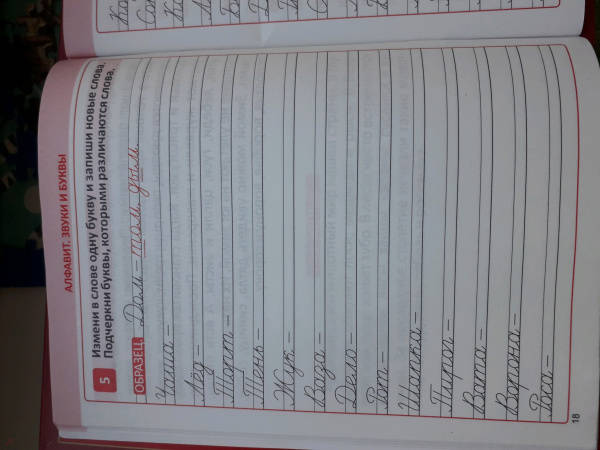 АЛФАВИТ. ЗВУКИ И БУКВЫ
5 Измени в слове одну букву и запиши новые слова.
Подчеркни буквы, которыми различаются слова.
ОБРАЗЕЦ. Дом – том, дым.
Чашка –
Лёд –
Торт –
Тень –
Жук –
Ваза –
Дело –
Рот –
Шапка –
Пирог –
Вата –
Ворона –
Роса –
18